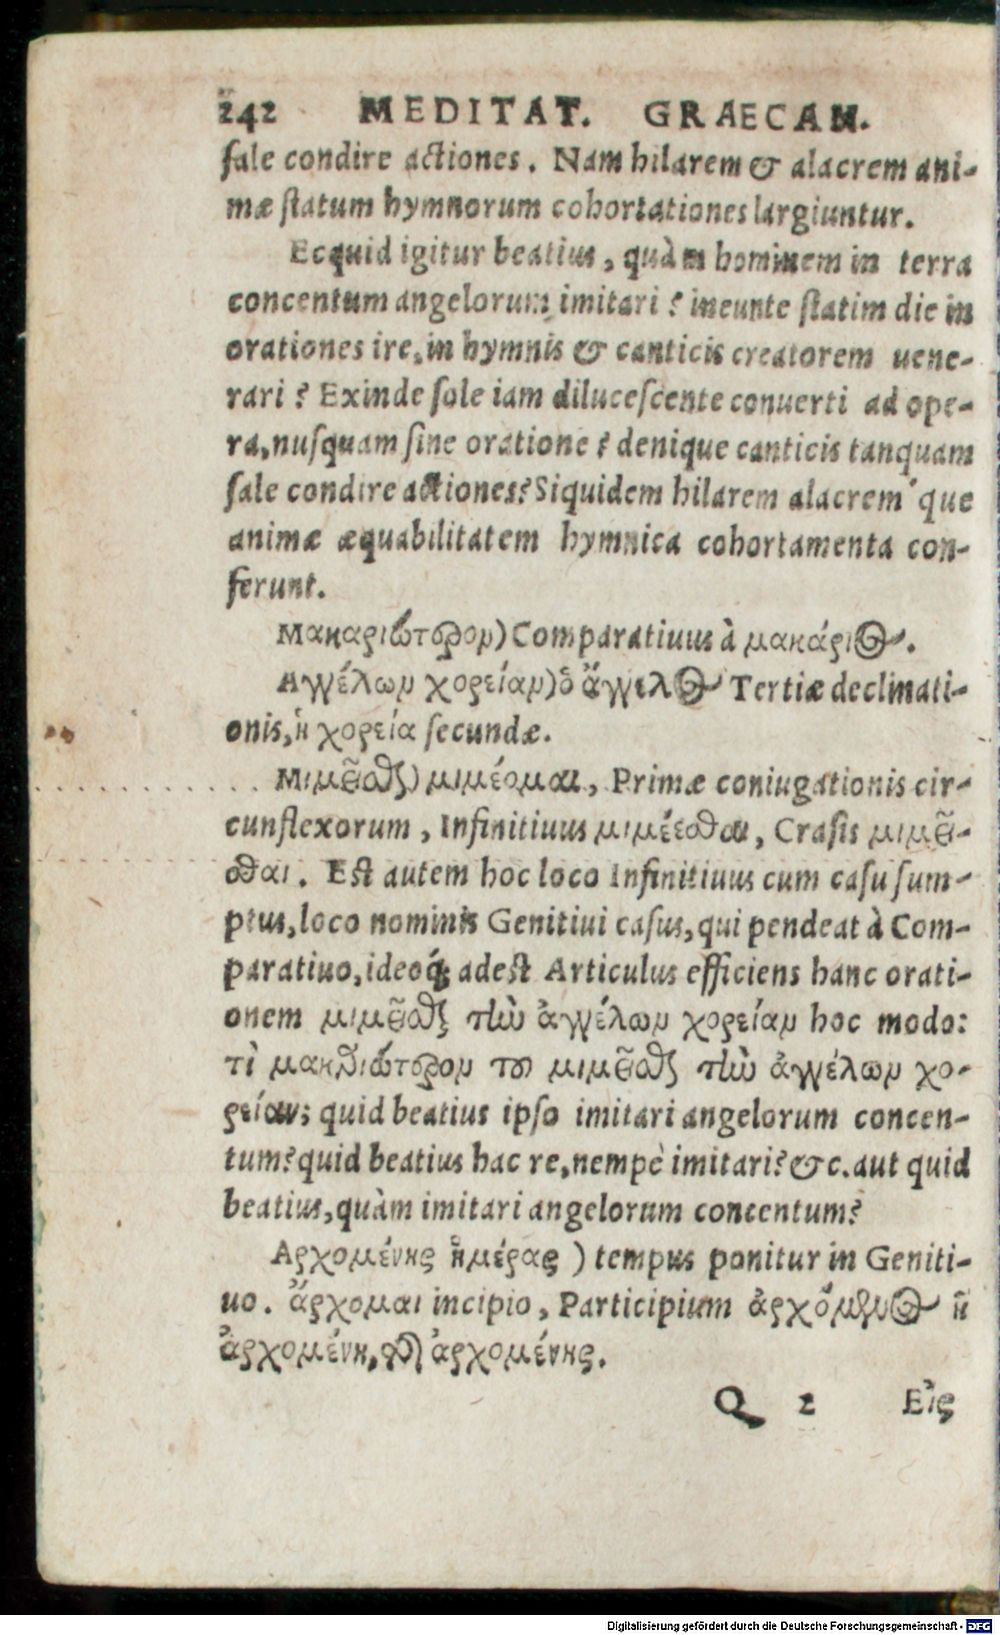 242 MEDITAT. GRAECAN.
ſale condire actiones. Nam hilarem & alacrem ani-
mæ ſtatum hymnorum cohortationes largiuntur.
Ecquid igitur beatius, quàm hominem in terra
concentum angelorum imitari? ineunte ſtatim die in
orationes ire, in hymnis & canticis creatorem uene-
rari? Exinde ſole iam diluceſcente conuerti ad ope-
ra, nuſquam ſine oratione? denique canticis tanquam
ſale condire actiones? Siquidem hilarem alacrem´que
animæ æquabilitatem hymnica cohortamenta con-
ferunt.
Μακαριώτερον) Comparatiuus à μακάριος.
Αγγέλων χορείαν) ὁ ἄγγελος Tertiæ declinati-
onis, ἡ χορεία ſecundæ.
Μιμεῖσθαι) μιμέομαι, Primæ coniugationis cir-
cunflexorum, Infinitiuus μιμέεσθαι, Craſis μιμεῖ-
σθαι. Eſt autem hoc loco Infinitiuus cum caſu ſum-
ptus, loco nominis Genitiui caſus, qui pendeat à Com-
paratiuo, ideoq́; adeſt Articulus efficiens hanc orati-
onem μιμεῖσθαι τὴν ἀγγέλων χορείαν hoc modo:
τὶ μακαριώτερον τοῦ μιμεῖσθαι τὴν ἀγγέλων χο-
ρείαν; quid beatius ipſo imitari angelorum concen-
tum? quid beatius hac re, nempè imitari? &c. aut quid
beatius, quàm imitari angelorum concentum?
Αρχομένης ἡμέρας ) tempus ponitur in Geniti-
uo. ἄρχομαι incipio, Participium ἀρχόμενος ἡ
ἀρχομένη, ἀρχομένης.
Q 2 Εἰς
Digitalisierung gefördert durch die Deutsche Forschungsgemeinschaft - DFG